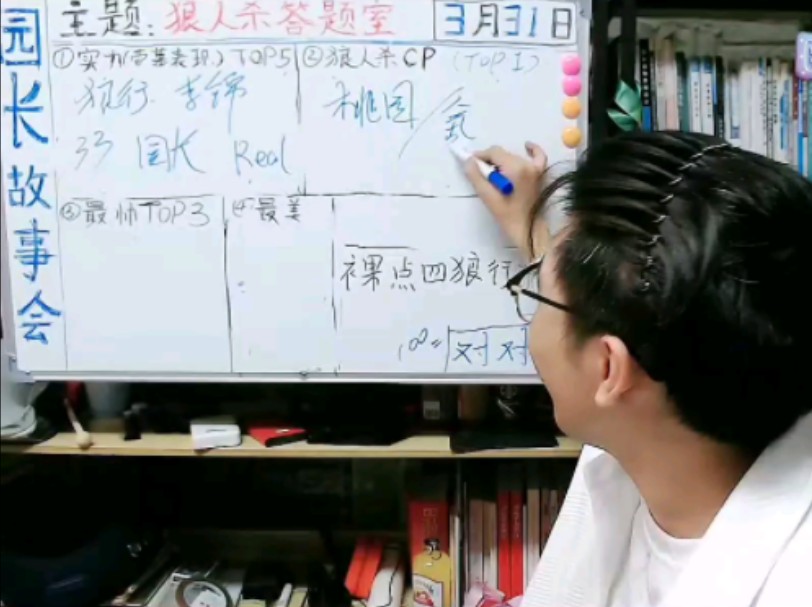 主题:狼人杀答题室
3月31日
园长故事会
①实力(荧幕表现)TOP5
狼行 李锦
33 园长 Real
②狼人杀CP (TOP1)
桃园/氪
③最帅TOP3
④最美
裸点四狼行
100=对对